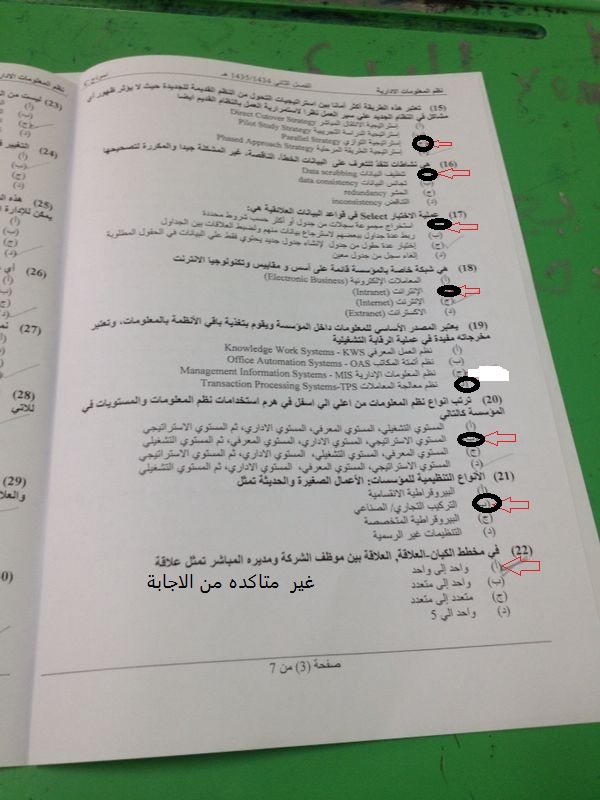 نظم المعلومات الادارية
الفصل الثاني 1435/1434 هـ
نموذج C
(15) تعتبر هذه الطريقة أكثر أمانا بين استراتيجيات التحول من النظم القديمة للجديدة حيث لا يؤثر ظهور أي
مشاكل في النظام الجديد علي سير العمل نظرا لاستمرارية العمل بالنظام القديم أيضا
أ) إستراتيجية الانتقال المباشر Direct Cutover Strategy
ب) إستراتيجية الدراسة التجريبية Pilot Study Strategy
إستراتيجية التوازي Parallel Strategy
د) إستراتيجية الطريقة المرحلية Phased Approach Strategy
(16) هي نشاطات تنفذ للتعرف على البيانات الخطأ، الناقصة، غير المشكلة جيدا والمكررة لتصحيحها
تنظيف البيانات Data scrubbing
ب) تجانس البيانات data consistency
ج) الحشو redundancy
د) التناقض inconsistency
(17) عملية الاختيار Select في قواعد البيانات العلائقية هي:
استخراج مجموعة سجلات من جدول أو أكثر حسب شروط محددة
ب) ربط عدة جداول ببعضهم لاسترجاع بيانات منهم ولضبط العلاقات بين الجداول
ج) إختيار عدة حقول من جدول لإنشاء جدول جديد يحتوي فقط علي البيانات في الحقول المطلوبة
د) إلغاء سجل من جدول معين
(18) هي شبكة خاصة بالمؤسسة قائمة على أسس و مقاييس وتكنولوجيا الانترنت
أ) المعاملات الإلكترونية (Electronic Business)
الإنترانت (Intranet)
ج) الإنترنت (Internet)
د) الاكسترانت (Extranet)
(19) يعتبر المصدر الأساسي للمعلومات داخل المؤسسة ويقوم بتغذية باقي الأنظمة بالمعلومات، وتعتبر
مخرجاته مفيدة في عملية الرقابة التشغيلية
أ) نظم العمل المعرفي Knowledge Work Systems - KWS
ب) نظم أتمتة المكاتب Office Automation Systems - OAS
ج) نظم المعلومات الإدارية Management Information Systems - MIS
نظم معالجة المعاملات Transaction Processing Systems-TPS
(20) ترتب انواع نظم المعلومات من اعلي الي اسفل في هرم استخدامات نظم المعلومات والمستويات في
المؤسسة كالتالي
أ) المستوي التشغيلي، المستوي المعرفي، المستوي الاداري، ثم المستوي الاستراتيجي
المستوي الاستراتيجي، المستوي الاداري، المستوي المعرفي، ثم المستوي التشغيلي
ج) المستوي المعرفي، المستوي التشغيلي، المستوي الاداري، ثم المستوي الاستراتيجي
د) المستوي الاستراتيجي، المستوي المعرفي، المستوي الاداري، ثم المستوي التشغيلي
(21) الأنواع التنظيمية للمؤسسات: الأعمال الصغيرة والحديثة تمثل
أ) البيروقراطية الانقسامية
التركيب التجاري/ الصناعي
ج) البيروقراطية المتخصصة
د) التنظيمات غير الرسمية
(22) في مخطط الكيان-العلاقة, العلاقة بين موظف الشركة ومديره المباشر تمثل علاقة
أ) واحد إلى واحد
ب) واحد إلى متعدد
ج) متعدد إلى متعدد
د) واحد الي 5
غير متاكده من الاجابة
صفحة (3) من 7
نظم المعلومات الادار
(23) ليست من
أ)
ب)
ج)
د)
(24) التغيير
أ)
ب)
ج)
د)
(25) هذه
يمكن للإدارة
أ)
ب)
ج)
د)
(26) أي
أ)
ب)
ج)
د)
(27)
أ)
ب)
ج)
د)
(28)
للاتي
(29)
والعلا